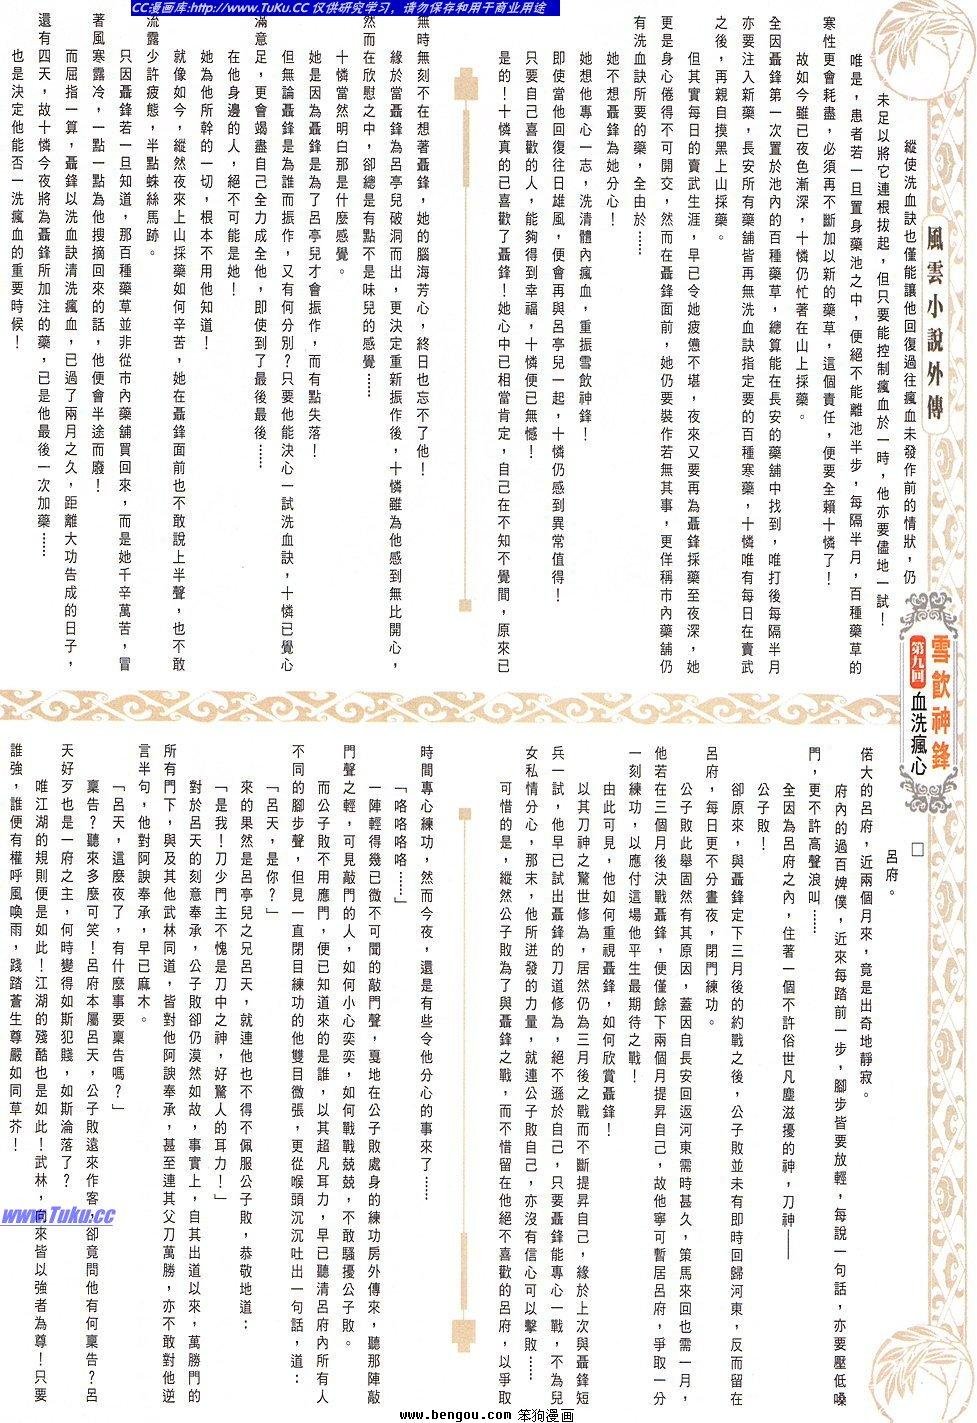 CC漫画库:http://www.TuKu.CC 仅供研究学习，请勿保存和用于商业用途
風雲小說外傳
雪飲神鋒
第九回
血洗瘋心
縱使洗血訣也僅能讓他回復過往瘋血未發作前的情狀，仍
未足以將它連根拔起，但只要能控制瘋血於一時，他亦要儘地一試！
唯是，患者若一旦置身藥池之中，便絕不能離池半步，每隔半月，百種藥草的
寒性更會耗盡，必須再不斷加以新的藥草，這個責任，便要全賴十憐了！
故如今雖已夜色漸深，十憐仍忙著在山上採藥。
全因聶鋒第一次置於池內的百種藥草，總算能在長安的藥舖中找到，唯打後每隔半月
亦要注入新藥，長安所有藥舖皆再無洗血訣指定要的百種寒藥，十憐唯有每日在賣武
之後，再親自摸黑上山採藥。
但其實每日的賣武生涯，早已令她疲憊不堪，夜來又要再為聶鋒採藥至夜深，她
更是身心倦得不可開交，然而在聶鋒面前，她仍要裝作若無其事，更佯稱市內藥舖仍
有洗血訣所要的藥，全由於……
她不想聶鋒為她分心！
她想他專心一志，洗清體內瘋血，重振雪飲神鋒！
即使當他回復往日雄風，便會再與呂亭兒一起，十憐仍感到異常值得！
只要自己喜歡的人，能夠得到幸福，十憐便已無憾！
是的！十憐真的已喜歡了聶鋒！她心中已相當肯定，自己在不知不覺間，原來已
無時無刻不在想著聶鋒，她的腦海芳心，終日也忘不了他！
緣於當聶鋒為呂亭兒破洞而出，更決定重新振作後，十憐雖為他感到無比開心，
然而在欣慰之中，卻總是有點不是味兒的感覺……
十憐當然明白那是什麼感覺。
她是因為聶鋒是為了呂亭兒才會振作，而有點失落！
但無論聶鋒是為誰而振作，又有何分別？只要他能決心一試洗血訣，十憐已覺心
滿意足，更會竭盡自己全力成全他，即使到了最後最後……
在他身邊的人，絕不可能是她！
她為他所幹的一切，根本不用他知道！
就像如今，縱然夜來上山採藥如何辛苦，她在聶鋒面前也不敢說上半聲，也不敢
流露少許疲態，半點蛛絲馬跡。
只因聶鋒若一旦知道，那百種藥草並非從市內藥舖買回來，而是她千辛萬苦，冒
著風寒露冷，一點一點為他搜摘回來的話，他便會半途而廢！
而屈指一算，聶鋒以洗血訣清洗瘋血，已過了兩月之久，距離大功告成的日子，
還有四天，故十憐今夜將為聶鋒所加注的藥，已是他最後一次加藥……
也是決定他能否一洗瘋血的重要時候！
□
呂府。
偌大的呂府，近兩個月來，竟是出奇地靜寂。
府內的過百婢僕，近來每踏前一步，腳步皆要放輕，每說一句話，亦要壓低嗓
門，更不許高聲浪叫……
全因為呂府之內，住著一個不許俗世凡塵滋擾的神，刀神——
公子敗！
卻原來，與聶鋒定下三月後的約戰之後，公子敗並未有即時回歸河東，反而留在
呂府，每日更不分晝夜，閉門練功。
公子敗此舉固然有其原因，蓋因自長安回返河東需時甚久，策馬來回也需一月，
他若在三個月後決戰聶鋒，便僅餘下兩個月提昇自己，故他寧可暫居呂府，爭取一分
一刻練功，以應付這場他平生最期待之戰！
由此可見，他如何重視聶鋒，如何欣賞聶鋒！
以其刀神之驚世修為，居然仍為三月後之戰而不斷提昇自己，緣於上次與聶鋒短
兵一試，他早已試出聶鋒的刀道修為，絕不遜於自己，只要聶鋒能專心一戰，不為兒
女私情分心，那末，他所迸發的力量，就連公子敗自己，亦沒有信心可以擊敗……
可惜的是，縱然公子敗為了與聶鋒之戰，而不惜留在他絕不喜歡的呂府，以爭取
時間專心練功，然而今夜，還是有些令他分心的事來了……
「咯咯咯咯……」
一陣輕得幾已微不可聞的敲門聲，戛地在公子敗處身的練功房外傳來，聽那陣敲
門聲之輕，可見敲門的人，如何小心奕奕，如何戰戰兢兢，不敢騷擾公子敗。
而公子敗不用應門，便已知道來的是誰，以其超凡耳力，早已聽清呂府內所有人
不同的腳步聲，但見一直閉目練功的他雙目微張，更從喉頭沉沉吐出一句話，道：
「呂天，是你？」
來的果然是呂亭兒之兄呂天，就連他也不得不佩服公子敗，恭敬地道：
「是我！刀少門主不愧是刀中之神，好驚人的耳力！」
對於呂天的刻意奉承，公子敗卻仍漠然如故，事實上，自其出道以來，萬勝門的
所有門下，與及其他武林同道，皆對他阿諛奉承，甚至連其父刀萬勝，亦不敢對他逆
言半句，他對阿諛奉承，早已麻木。
「呂天，這麼夜了，有什麼事要稟告嗎？」
稟告？聽來多麼可笑！呂府本屬呂天，公子敗遠來作客，卻竟問他有何稟告？呂
天好歹也是一府之主，何時變得如斯犯賤，如斯淪落了？
唯江湖的規則便是如此！江湖的殘酷也是如此！武林，向來皆以強者為尊！只要
誰強，誰便有權呼風喚雨，踐踏蒼生尊嚴如同草芥！
www.Tuku.cc
www.bengou.com 笨狗漫画